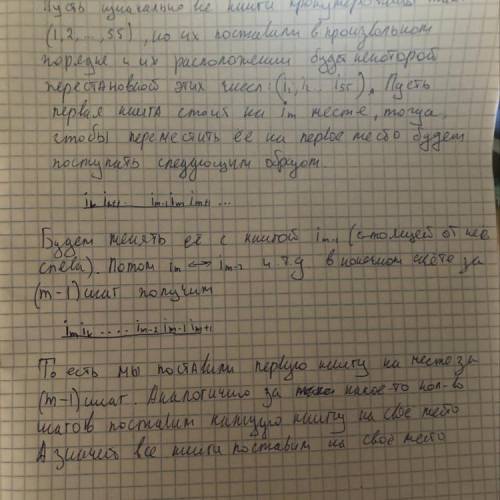 Пусть изначально все книги пронумерованы так
(1,2,...,55), но их поставили в произвольном
порядке и их расположении будет некоторой
перестановкой этих чисел: (i₁, i₂ ... i₅₅). Пусть
первая книга стоит на iₘ месте, тогда,
чтобы переместить её на первое место будем
поступать следующим образом.
iₘ₋₁ iₘ iₘ₊₁ ...
Будем менять её с книгой iₘ₋₁ (стоящей от неё
слева). Потом iₘ ↔ iₘ₋₂ и т.д в конечном счёте за
(m-1) шаг получим
.... iₘ₋₂ iₘ₋₁ iₘ₊₁
То есть мы поставили первую книгу на место за
(m-1) шаг. Аналогично за какое-то кол-во
шагов поставим каждую книгу на своё место
А значит все книги поставим на своё место